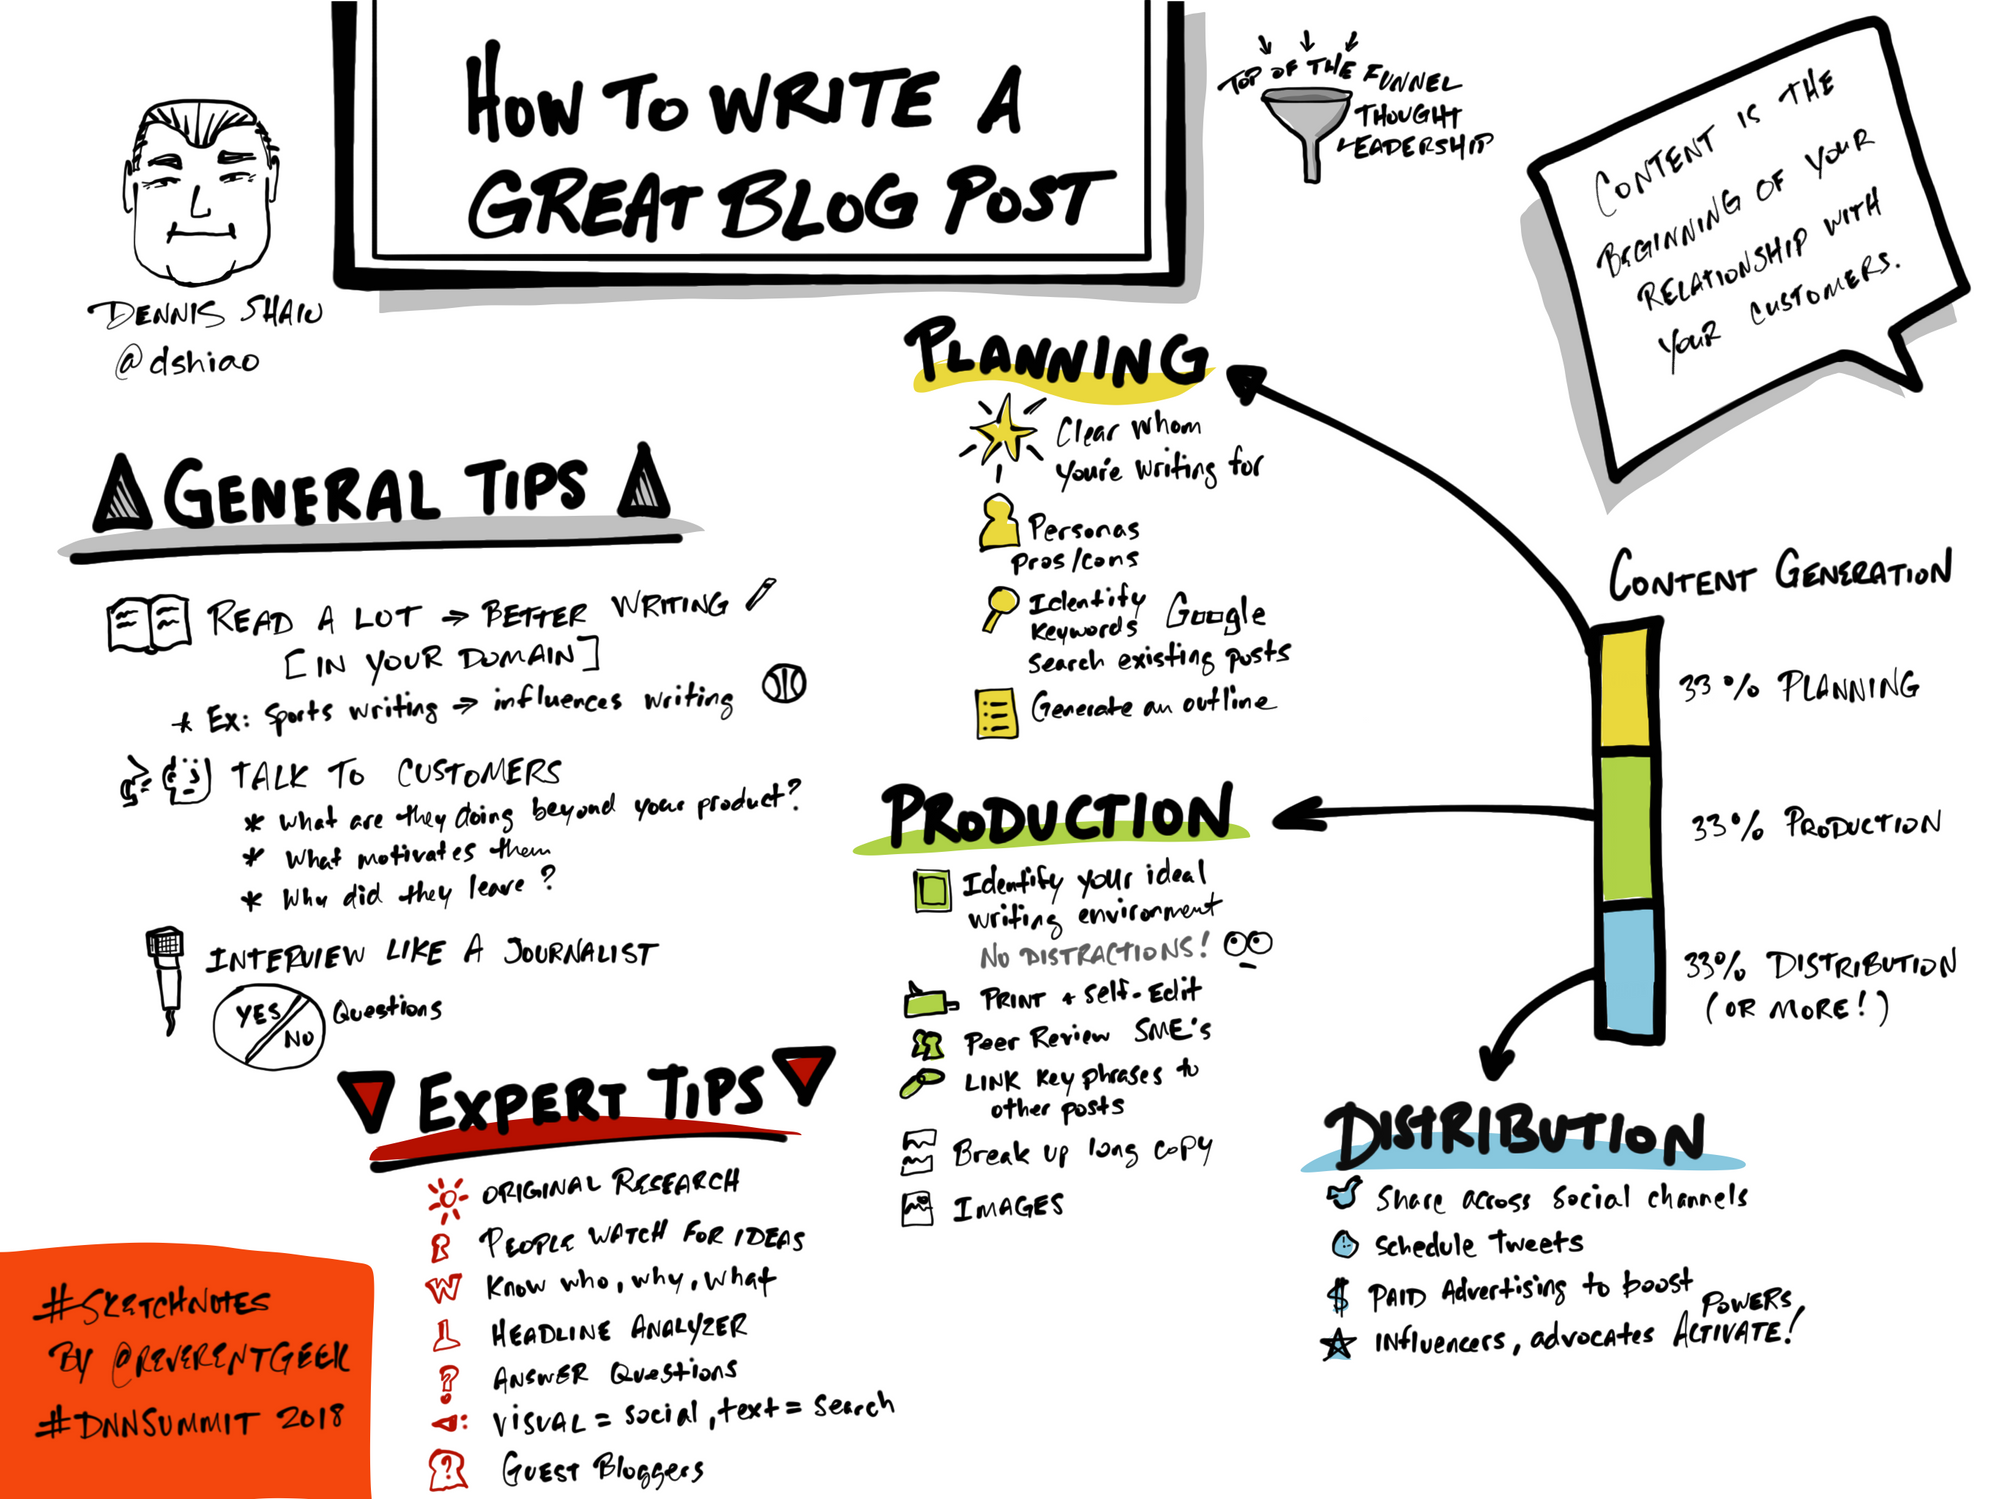 HOW TO WRITE A
GREAT BLOG POST
DENNIS SHAIO
@dshiao
TOP OF THE FUNNEL
THOUGHT
LEADERSHIP
CONTENT IS THE
BEGINNING OF YOUR
RELATIONSHIP WITH
YOUR CUSTOMERS.
GENERAL TIPS
READ A LOT → BETTER WRITING
[IN YOUR DOMAIN]
* Ex: Sports writing → influences writing
TALK TO CUSTOMERS
* What are they doing beyond your product?
* What motivates them
* Why did they leave?
INTERVIEW LIKE A JOURNALIST
YES/NO Questions
EXPERT TIPS
ORIGINAL RESEARCH
PEOPLE WATCH FOR IDEAS
W Know who, why, what
HEADLINE ANALYZER
? ANSWER Questions
VISUAL = Social, text = Search
? GUEST Bloggers
PLANNING
Clear whom
you're writing for
Personas
Pros/cons
Identify
Keywords Google
Search existing posts
Generate an outline
PRODUCTION
Identify your ideal
writing environment
NO DISTRACTIONS!
PRINT + Self-Edit
Peer Review SME's
LINK Key phrases to
other posts
Break up long copy
IMAGES
CONTENT GENERATION
33% PLANNING
33% PRODUCTION
33% DISTRIBUTION
(OR MORE!)
DISTRIBUTION
Share across Social channels
Schedule Tweets
$ PAID Advertising to boost
Influencers, advocates POWERS ACTIVATE!
#SKETCHNOTES
BY @REVERENTGEEK
#DNNSUMMIT 2018